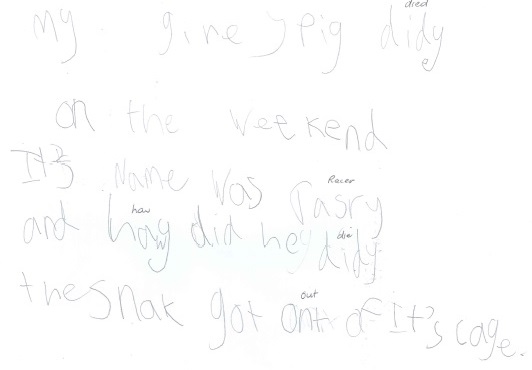 died
My giney pig didy
e
on the weekend
It's Name was rasry
Racer
and how did hey didy
how
die
the snak got ont of It's cage.
out